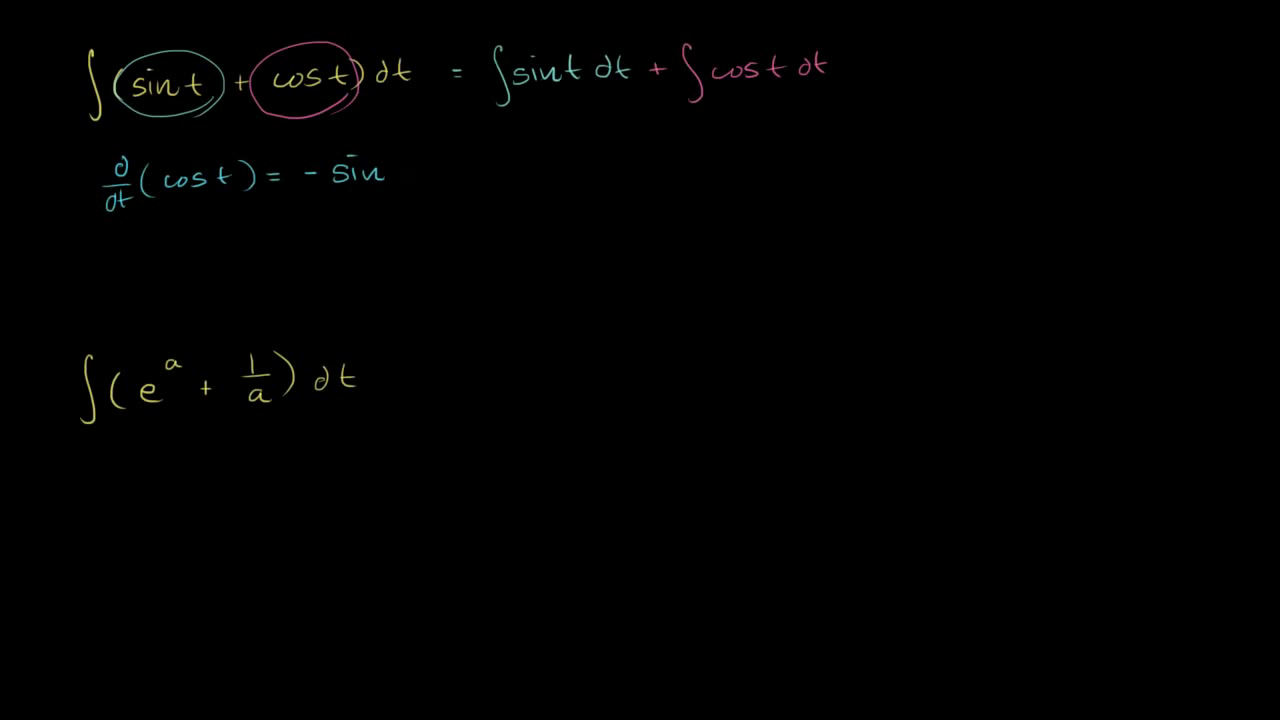 ∫(sin t + cos t) dt = ∫sin t dt + ∫cos t dt
d/dt (cos t) = - sin
∫(e^a + 1/a) dt